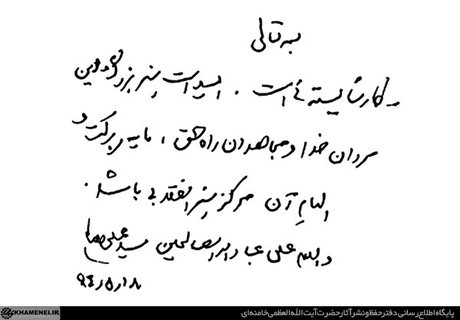 بسمه تعالی
کار شایسته ئی است. امید است هنر بزرگ و دین
مردان خدا و مجاهدان راه حق، مایه برکت و
الهام آن مرکز هنر انقلابی باشد.
والسلام علی عباد الله الصالحین سید علی خامنه‌ای
۹۴/۵/۱۸
KHAMENEI.IR
پایگاه اطلاع‌رسانی دفتر حفظ و نشر آثار حضرت آیت‌الله‌العظمی خامنه‌ای